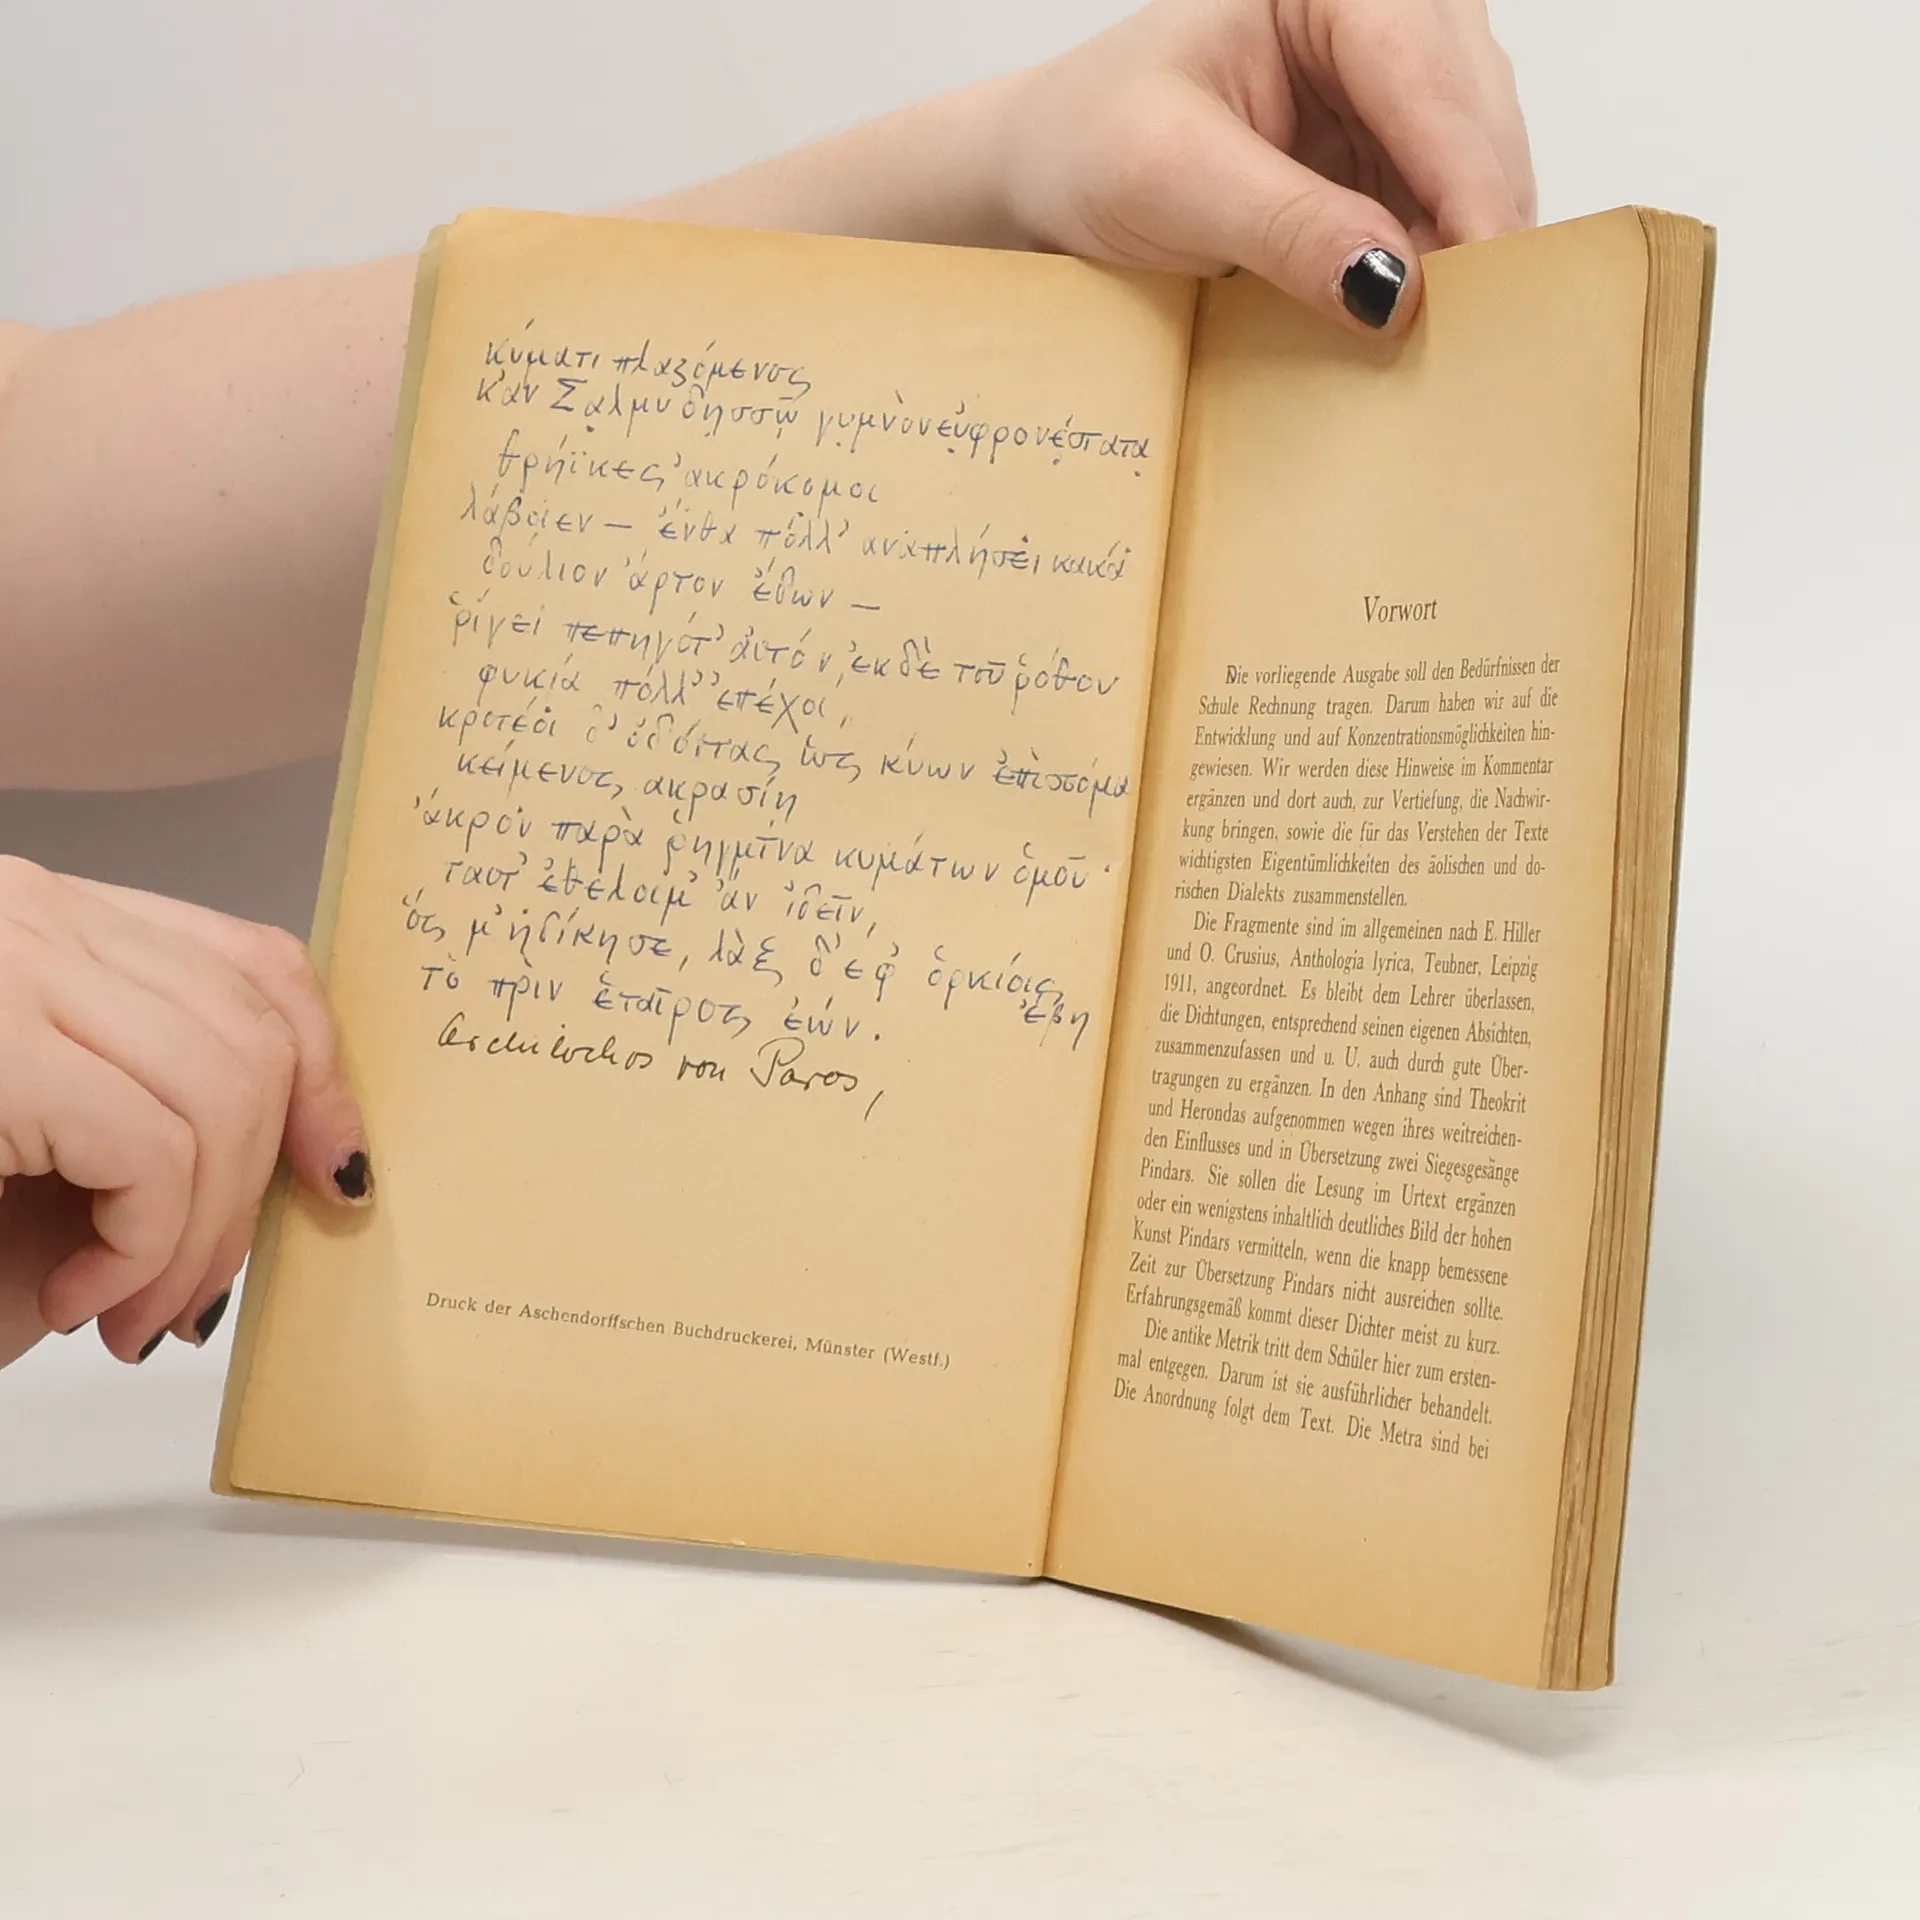 κύματι πλαζόμενος
κἀν Σαλμυδησσῷ γυμνὸν εὐφρονέστατα
θρήϊκες ἀκρόκομοι
λάβοιεν – ἔνθα πόλλ' ἀναπλήσει κακά
δούλιον ἄρτον ἔδων –
ῥίγει πεπηγότ' αὐτόν, ἐκ δὲ τοῦ ῥόθου
φυκία πόλλ' ἐπέχοι,
κροτέοι δ' ὀδόντας ὡς κύων ἐπὶ στόμα
κείμενος ἀκρασίη
ἄκρον παρὰ ῥηγμῖνα κυμάτων ὁμοῦ·
ταῦτ' ἐθέλοιμ' ἂν ἰδεῖν,
ὅς μ' ἠδίκησε, λὰξ δ' ἐφ' ὁρκίοις
ἔβη
τὸ πρὶν ἑταῖρος ἐών.
Archilochos von Paros,
Druck der Aschendorffschen Buchdruckerei, Münster (Westf.)
Vorwort
Die vorliegende Ausgabe soll den Bedürfnissen der
Schule Rechnung tragen. Darum haben wir auf die
Entwicklung und auf Konzentrationsmöglichkeiten hin-
gewiesen. Wir werden diese Hinweise im Kommentar
ergänzen und dort auch, zur Vertiefung, die Nachwir-
kung bringen, sowie die für das Verstehen der Texte
wichtigsten Eigentümlichkeiten des äolischen und do-
rischen Dialekts zusammenstellen.
Die Fragmente sind im allgemeinen nach E. Hiller
und O. Crusius, Anthologia lyrica, Teubner, Leipzig
1911, angeordnet. Es bleibt dem Lehrer überlassen,
die Dichtungen, entsprechend seinen eigenen Absichten,
zusammenzufassen und u. U. auch durch gute Über-
tragungen zu ergänzen. In den Anhang sind Theokrit
und Herondas aufgenommen wegen ihres weitreichen-
den Einflusses und in Übersetzung zwei Siegesgesänge
Pindars. Sie sollen die Lesung im Urtext ergänzen
oder ein wenigstens inhaltlich deutliches Bild der hohen
Kunst Pindars vermitteln, wenn die knapp bemessene
Zeit zur Übersetzung Pindars nicht ausreichen sollte.
Erfahrungsgemäß kommt dieser Dichter meist zu kurz.
Die antike Metrik tritt dem Schüler hier zum ersten-
mal entgegen. Darum ist sie ausführlicher behandelt.
Die Anordnung folgt dem Text. Die Metra sind bei